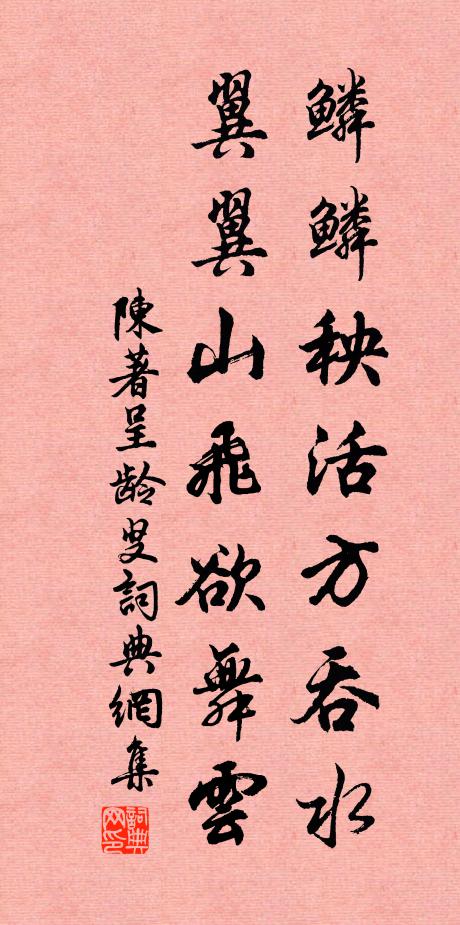 鱗鱗秧活方吞水
翼翼山飛欲舞雲
陳著呈龄叟詞典網集
詞典网印